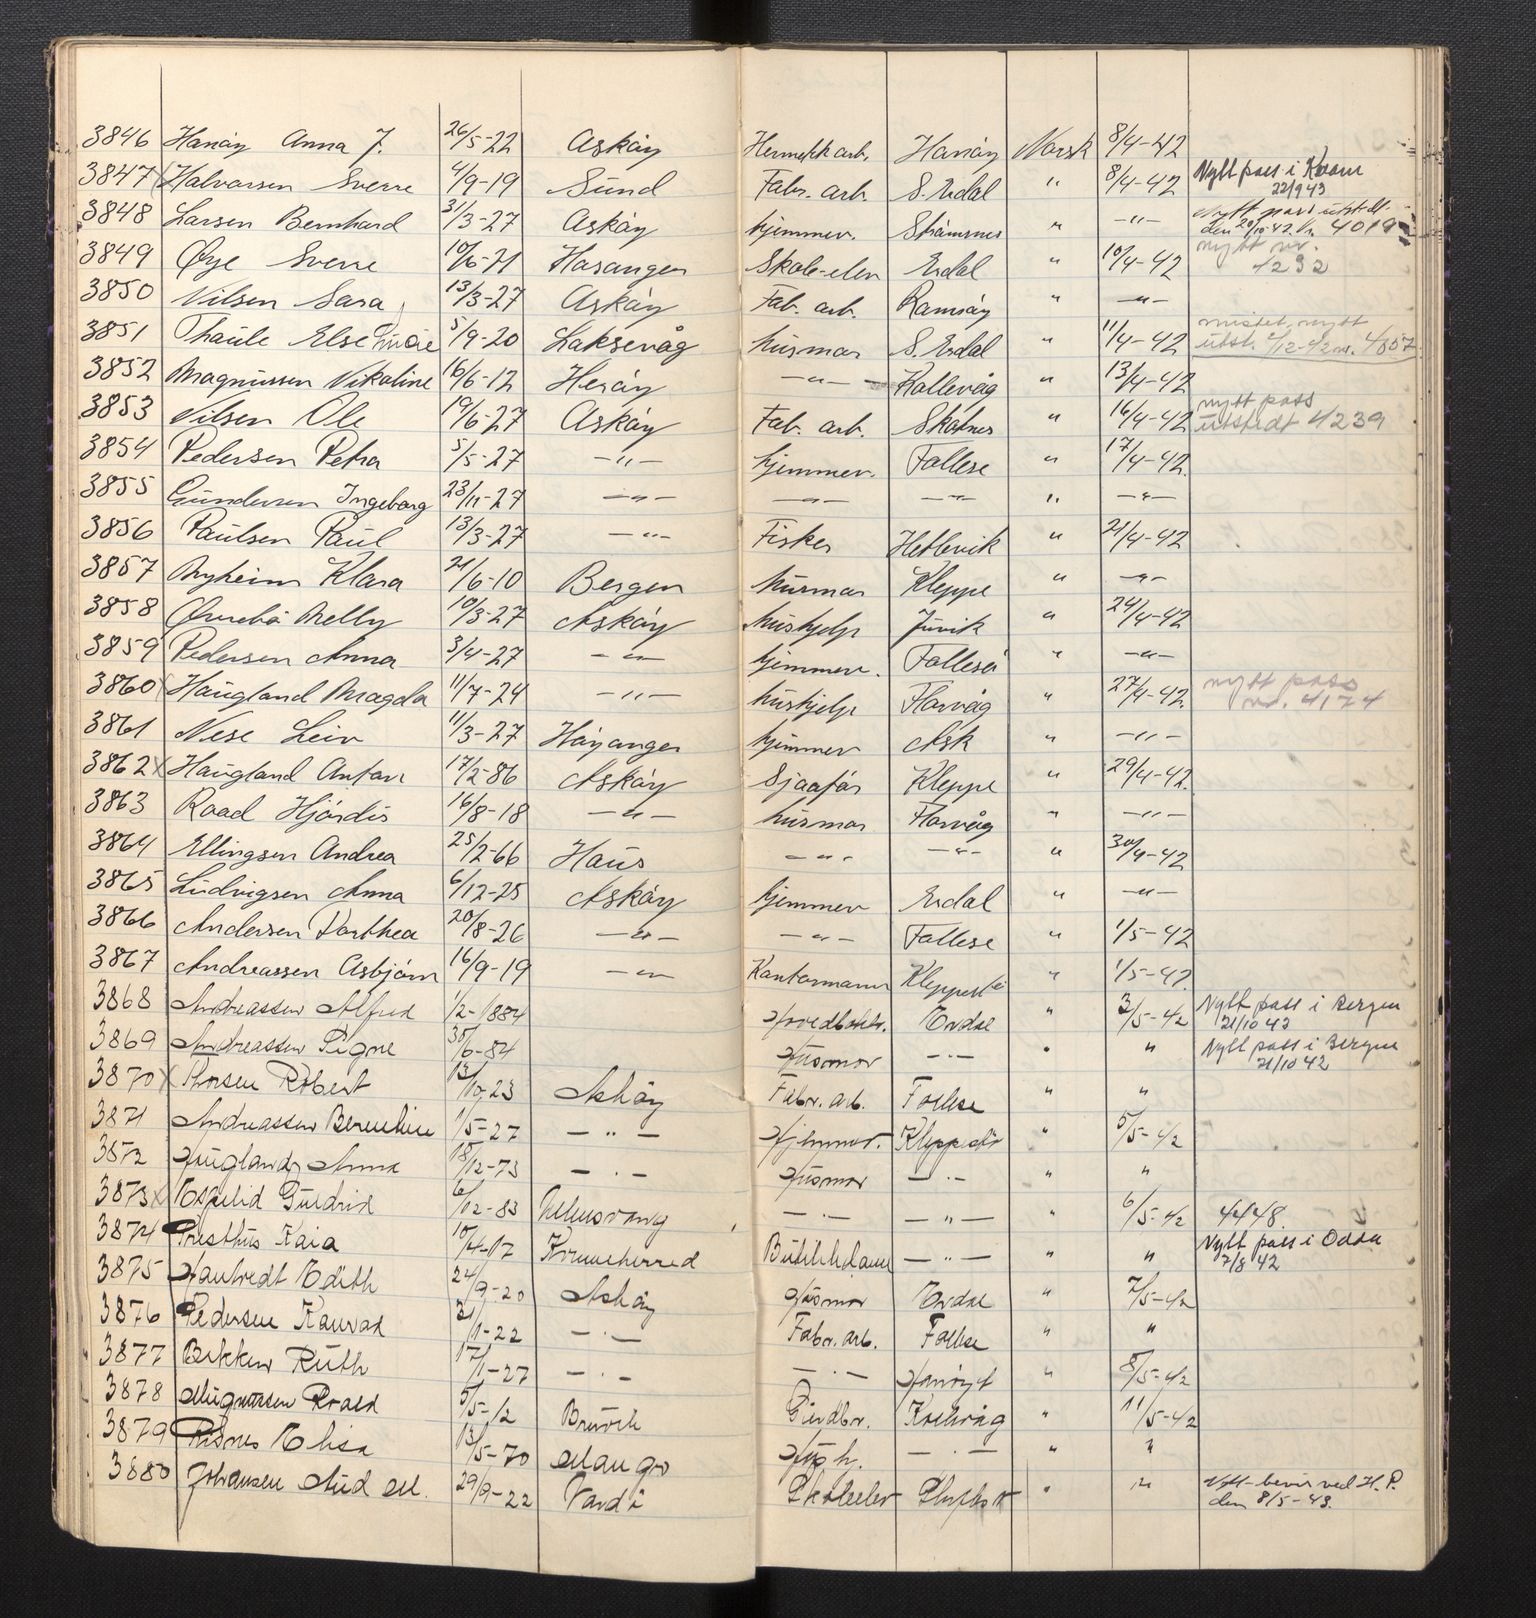 3846 Hanøy Anna J. 26/5-22 Askøy Hermetikk arb. Hanøy Norsk 8/4-42
3847 x Halvorsen Sverre 4/9-19 Sund Fabr. arb. S. Erdal " 8/4-42 Nytt pass i Kvam 22/9 43
3848 Larsen Bernhard 31/3-27 Askøy hjemmev. Strømsnes " —"— Nytt pass utstedt den 20/10-42 Nr. 4019
3849 Øye Sverre 10/6-21 Hosanger Skole-elev Erdal " 10/4-42 nytt nr. 4232
3850 Nilsen Sara 13/3-27 Askøy Fab. arb. Ramsøy " —"—
3851 Thaule Else 5/9-20 Laksevåg husmor S. Erdal " 11/4-42 mistet, nytt utst. 4/12-42 nr. 4057
3852 Magnussen Nikoline 16/6-12 Herøy —"— Kollevåg " 13/4-42
3853 Nilsen Ole 19/6-27 Askøy Fab. arb. Skotnes " 16/4-42 nytt pass utstedt 4239
3854 Pedersen Petra 5/5-27 —"— hjemmev. Follese " 17/4-42
3855 Gundersen Ingeborg 23/11-27 —"— —"— —"— " —"—
3856 Paulsen Paul 13/3-27 —"— Fisker Hetlevik " 21/4-42
3857 Myheim Klara 21/6-10 Bergen husmor Kleppe " —"—
3858 Ørnebø Nelly 10/3-27 Askøy hushjelp Juvik " 24/4-42
3859 Pedersen Anna 3/4-27 —"— hjemmev. Follesø " —"—
3860 x Haugland Magda 11/7-24 —"— hushjelp Florvåg " 27/4-42 nytt pass nr. 4174
3861 Nese Leiv 11/3-27 Høyanger hjemmev Ask " —"—
3862 x Haugland Anton 17/2-86 Askøy Sjaafør Kleppe " 29/4-42
3863 Raad Hjørdis 16/8-18 —"— husmor Florvåg " —"—
3864 Ellingsen Andrea 25/2-66 Haus —"— —"— " 30/4-42
3865 Ludvigsen Anna 6/12-25 Askøy hjemmev Erdal " —"—
3866 Andersen Dorthea 20/8-26 —"— —"— Follese " 1/5-42
3867 Andreassen Asbjørn 16/9-19 —"— Kontormann Kleppestø " 1/5-42
3868 Andreassen Alfred 1/2-1884 Erdal " 2/5-42 Nytt pass i Bergen 21/10 42
3869 Andreassen Signe 30/6-84 Husmor —"— " " Nytt pass i Bergen 21/10 42
3870 x Thorsen Robert 13/10-23 Askøy Fabr. arb. Follese " "
3871 Andreassen 1/5-27 —"— Hjemmev. Kleppestø " 5/5-42
3872 Haugland, Anna 18/12-73 —"— Husmor —"— " "
3873 x Espelid Guldrid 6/12-83 Ullensvang —"— —"— " 6/5-42 4448
3874 Presthus Kaia 10/4-17 Kvinneherred Butikkdame —"— " " Nytt pass i Odda 7/8 42
3875 Hantvedt Edith 24/9-20 Askøy Husmor Erdal " 7/5-42
3876 Pedersen Konrad 21/1-22 —"— Fabr. arb. Follese " "
3877 Bekken Ruth 17/1-27 —"— —"— Hanøyt " 8/5-42
3878 Magnussen Roald 5/5-12 Gårdbr. Kollevåg " 11/5-42
3879 Risnes Elisa 13/5-70 Manger Hush. —"— " "
3880 Johansen Aud M. 29/9-22 Vardø Skoleelev " " Nytt bevis ved H. P. den 8/5-43.